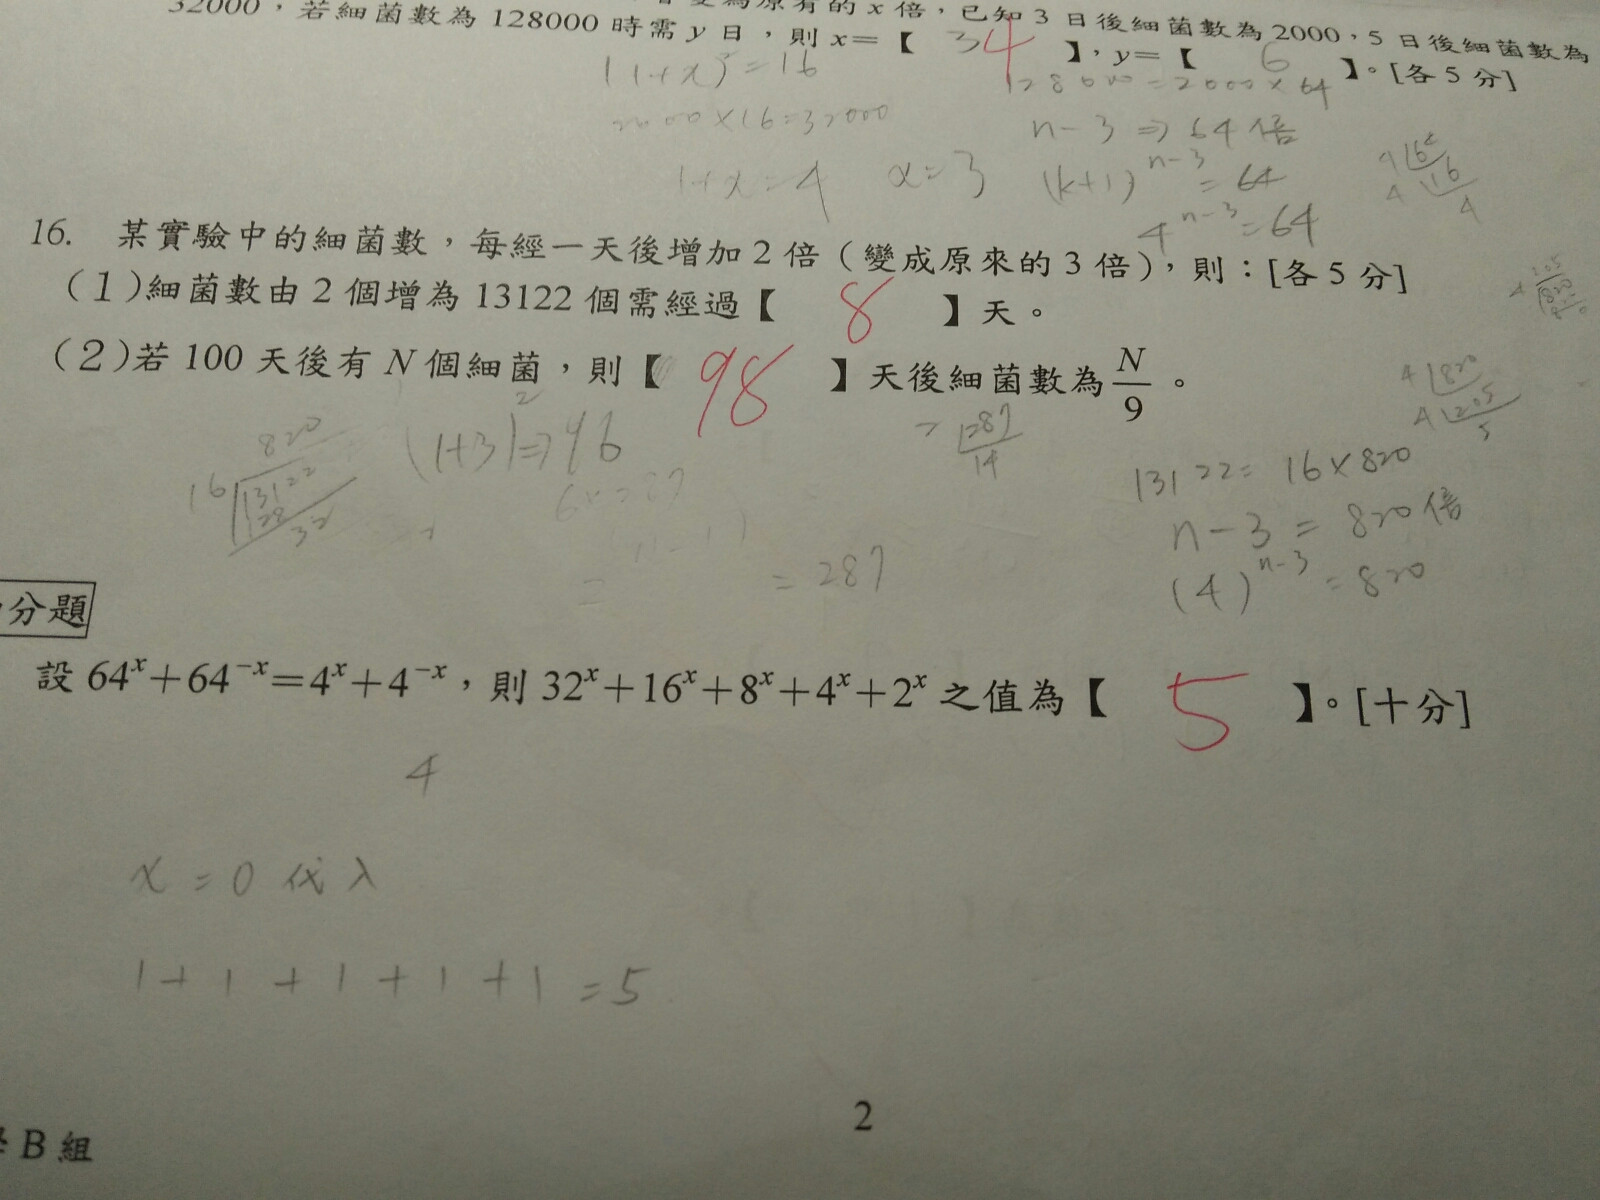 變為原有的 x 倍，已知 3 日後細菌數為 2000，5 日後細菌數為
32000，若細菌數為 128000 時需 y 日，則 x=【 34 】，y=【 6 】。[各 5 分]
(1+x)²=16
128000=2000×64
2000×16=32000
n-3⇒64倍
1+x=4 x=3 (k+1)^{n-3}=64
4^{n-3}=64
16. 某實驗中的細菌數，每經一天後增加 2 倍（變成原來的 3 倍），則：[各 5 分]
(1)細菌數由 2 個增為 13122 個需經過【 8 】天。
(2)若 100 天後有 N 個細菌，則【 98 】天後細菌數為 N/9 。
(1+3)²⇒96
820
16 13122
128
32
287
14
4 820
4 205
5
13122=16×820
n-3=820倍
=287
(4)^{n-3}=820
分題
設 64^x+64^{-x}=4^x+4^{-x}，則 32^x+16^x+8^x+4^x+2^x 之值為【 5 】。[十分]
4
x=0代入
1+1+1+1+1=5
2
B 組